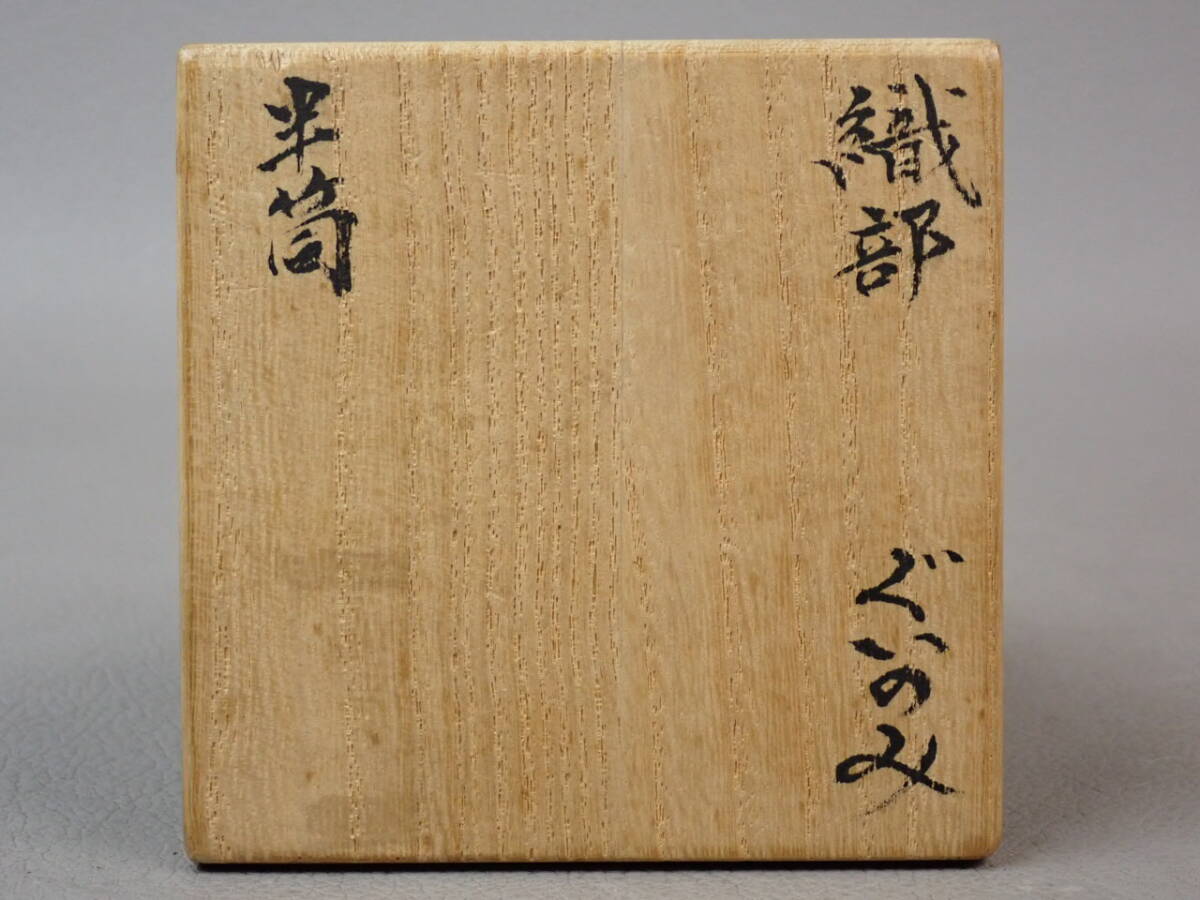 織部 ぐいのみ
半筒